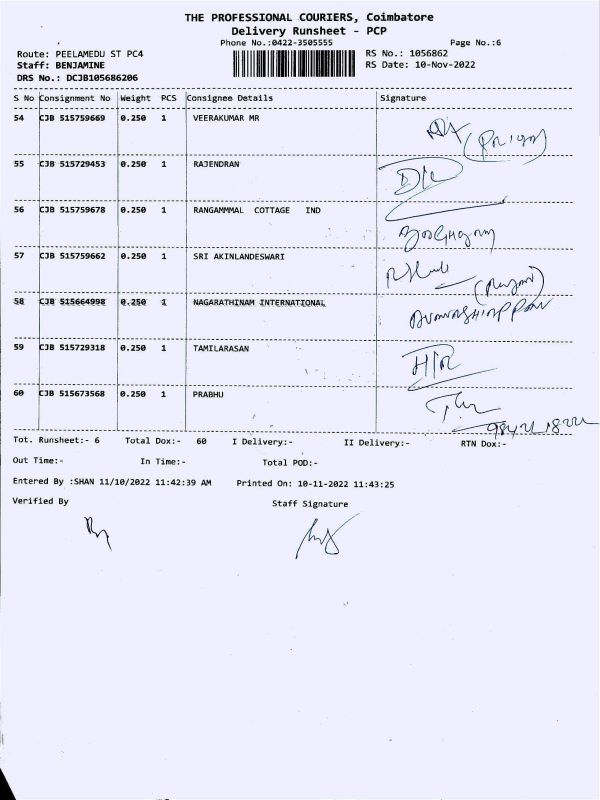 THE PROFESSIONAL COURIERS, Coimbatore
Delivery Runsheet - PCP
Phone No.:0422-3505555 Page No.:6
Route: PEELAMEDU ST PC4 RS No.: 1056862
Staff: BENJAMINE RS Date: 10-Nov-2022
DRS No.: DCJB105686206
S No Consignment No Weight PCS Consignee Details Signature
54 CJB 515759669 0.250 1 VEERAKUMAR MR
55 CJB 515729453 0.250 1 RAJENDRAN
56 CJB 515759678 0.250 1 RANGAMMMAL COTTAGE IND
57 CJB 515759662 0.250 1 SRI AKINLANDESWARI
58 CJB 515664998 0.250 1 NAGARATHINAM INTERNATIONAL
59 CJB 515729318 0.250 1 TAMILARASAN
60 CJB 515673568 0.250 1 PRABHU
Tot. Runsheet:- 6 Total Dox:- 60 I Delivery:- II Delivery:- RTN Dox:-
Out Time:- In Time:- Total POD:-
Entered By :SHAN 11/10/2022 11:42:39 AM Printed On: 10-11-2022 11:43:25
Verified By Staff Signature